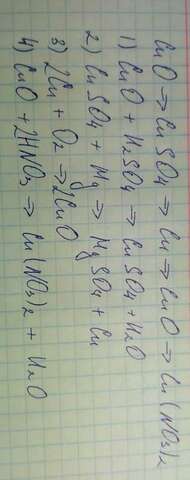 CuO → CuSO4 → Cu → CuO → Cu(NO3)2
1) CuO + H2SO4 → CuSO4 + H2O
2) CuSO4 + Mg → MgSO4 + Cu
3) 2Cu + O2 → 2CuO
4) CuO + 2HNO3 → Cu(NO3)2 + H2O